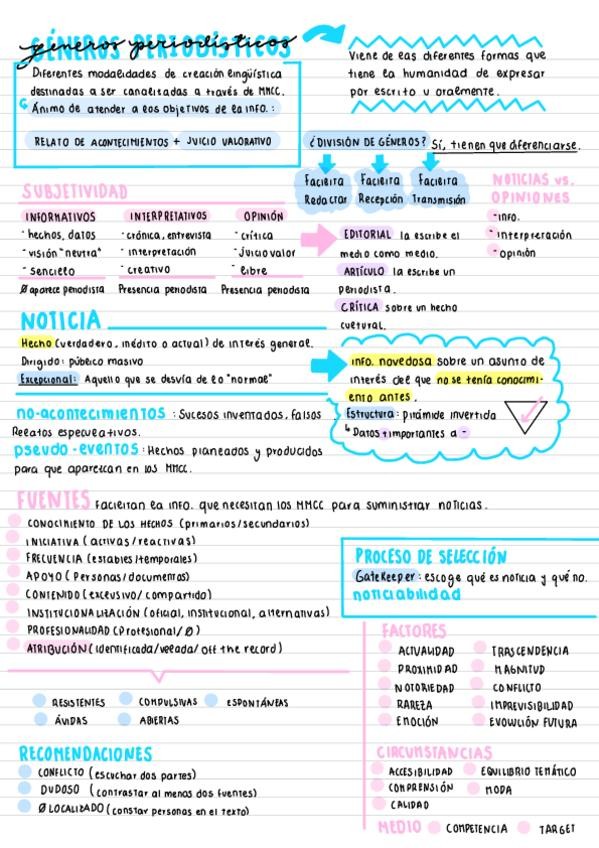 GÉNEROS PERIODÍSTICOS
Diferentes modalidades de creación lingüística
destinadas a ser canalizadas a través de MMCC.
Ánimo de atender a los objetivos de la info.:
RELATO DE ACONTECIMIENTOS + JUICIO VALORATIVO
Viene de las diferentes formas que
tiene la humanidad de expresar
por escrito u oralmente.
¿DIVISIÓN DE GÉNEROS? Sí, tienen que diferenciarse.
Facilita Redactar
Facilita Recepción
Facilita Transmisión
SUBJETIVIDAD
INFORMATIVOS
- hechos, datos
- visión "neutra"
- sencillo
Ø aparece periodista
INTERPRETATIVOS
- crónica, entrevista
- interpretación
- creativo
Presencia periodista
OPINIÓN
- crítica
- juicio valor
- libre
Presencia periodista
EDITORIAL la escribe el
medio como medio.
ARTÍCULO la escribe un
periodista.
CRÍTICA sobre un hecho
cultural.
NOTICIAS vs.
OPINIONES
- info.
- interpretación
- opinión
NOTICIA
Hecho (verdadero, inédito o actual) de interés general.
Dirigido: público masivo
Excepcional: Aquello que se desvía de lo "normal"
info. novedosa sobre un asunto de
interés del que no se tenía conocimi-
ento antes.
Estructura: pirámide invertida
↳ Datos + importantes a -
no-acontecimientos: Sucesos inventados, falsos.
Relatos especulativos.
pseudo-eventos: Hechos planeados y producidos
para que aparezcan en los MMCC.
FUENTES Facilitan la info. que necesitan los MMCC para suministrar noticias.
CONOCIMIENTO DE LOS HECHOS (primarios/secundarios)
INICIATIVA (activas/reactivas)
FRECUENCIA (estables/temporales)
APOYO (Personas/documentos)
CONTENIDO (exclusivo/compartido)
INSTITUCIONALIZACIÓN (oficial, institucional, alternativas)
PROFESIONALIDAD (Profesional/Ø)
ATRIBUCIÓN (identificada/velada/off the record)
RESISTENTES
COMPULSIVAS
ESPONTÁNEAS
ÁVIDAS
ABIERTAS
PROCESO DE SELECCIÓN
GateKeeper: escoge qué es noticia y qué no.
noticiabilidad
FACTORES
ACTUALIDAD
TRASCENDENCIA
PROXIMIDAD
MAGNITUD
NOTORIEDAD
CONFLICTO
RAREZA
IMPREVISIBILIDAD
EMOCIÓN
EVOLUCIÓN FUTURA
RECOMENDACIONES
CONFLICTO (escuchar dos partes)
DUDOSO (contrastar al menos dos fuentes)
Ø LOCALIZADO (constar personas en el texto)
CIRCUNSTANCIAS
ACCESIBILIDAD
EQUILIBRIO TEMÁTICO
COMPRENSIÓN
MODA
CALIDAD
MEDIO
COMPETENCIA
TARGET